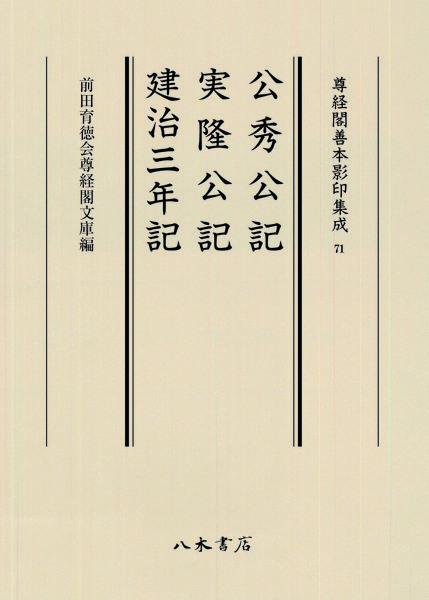 尊経閣善本影印集成 71
公秀公記
実隆公記
建治三年記
前田育徳会尊経閣文庫編
八木書店